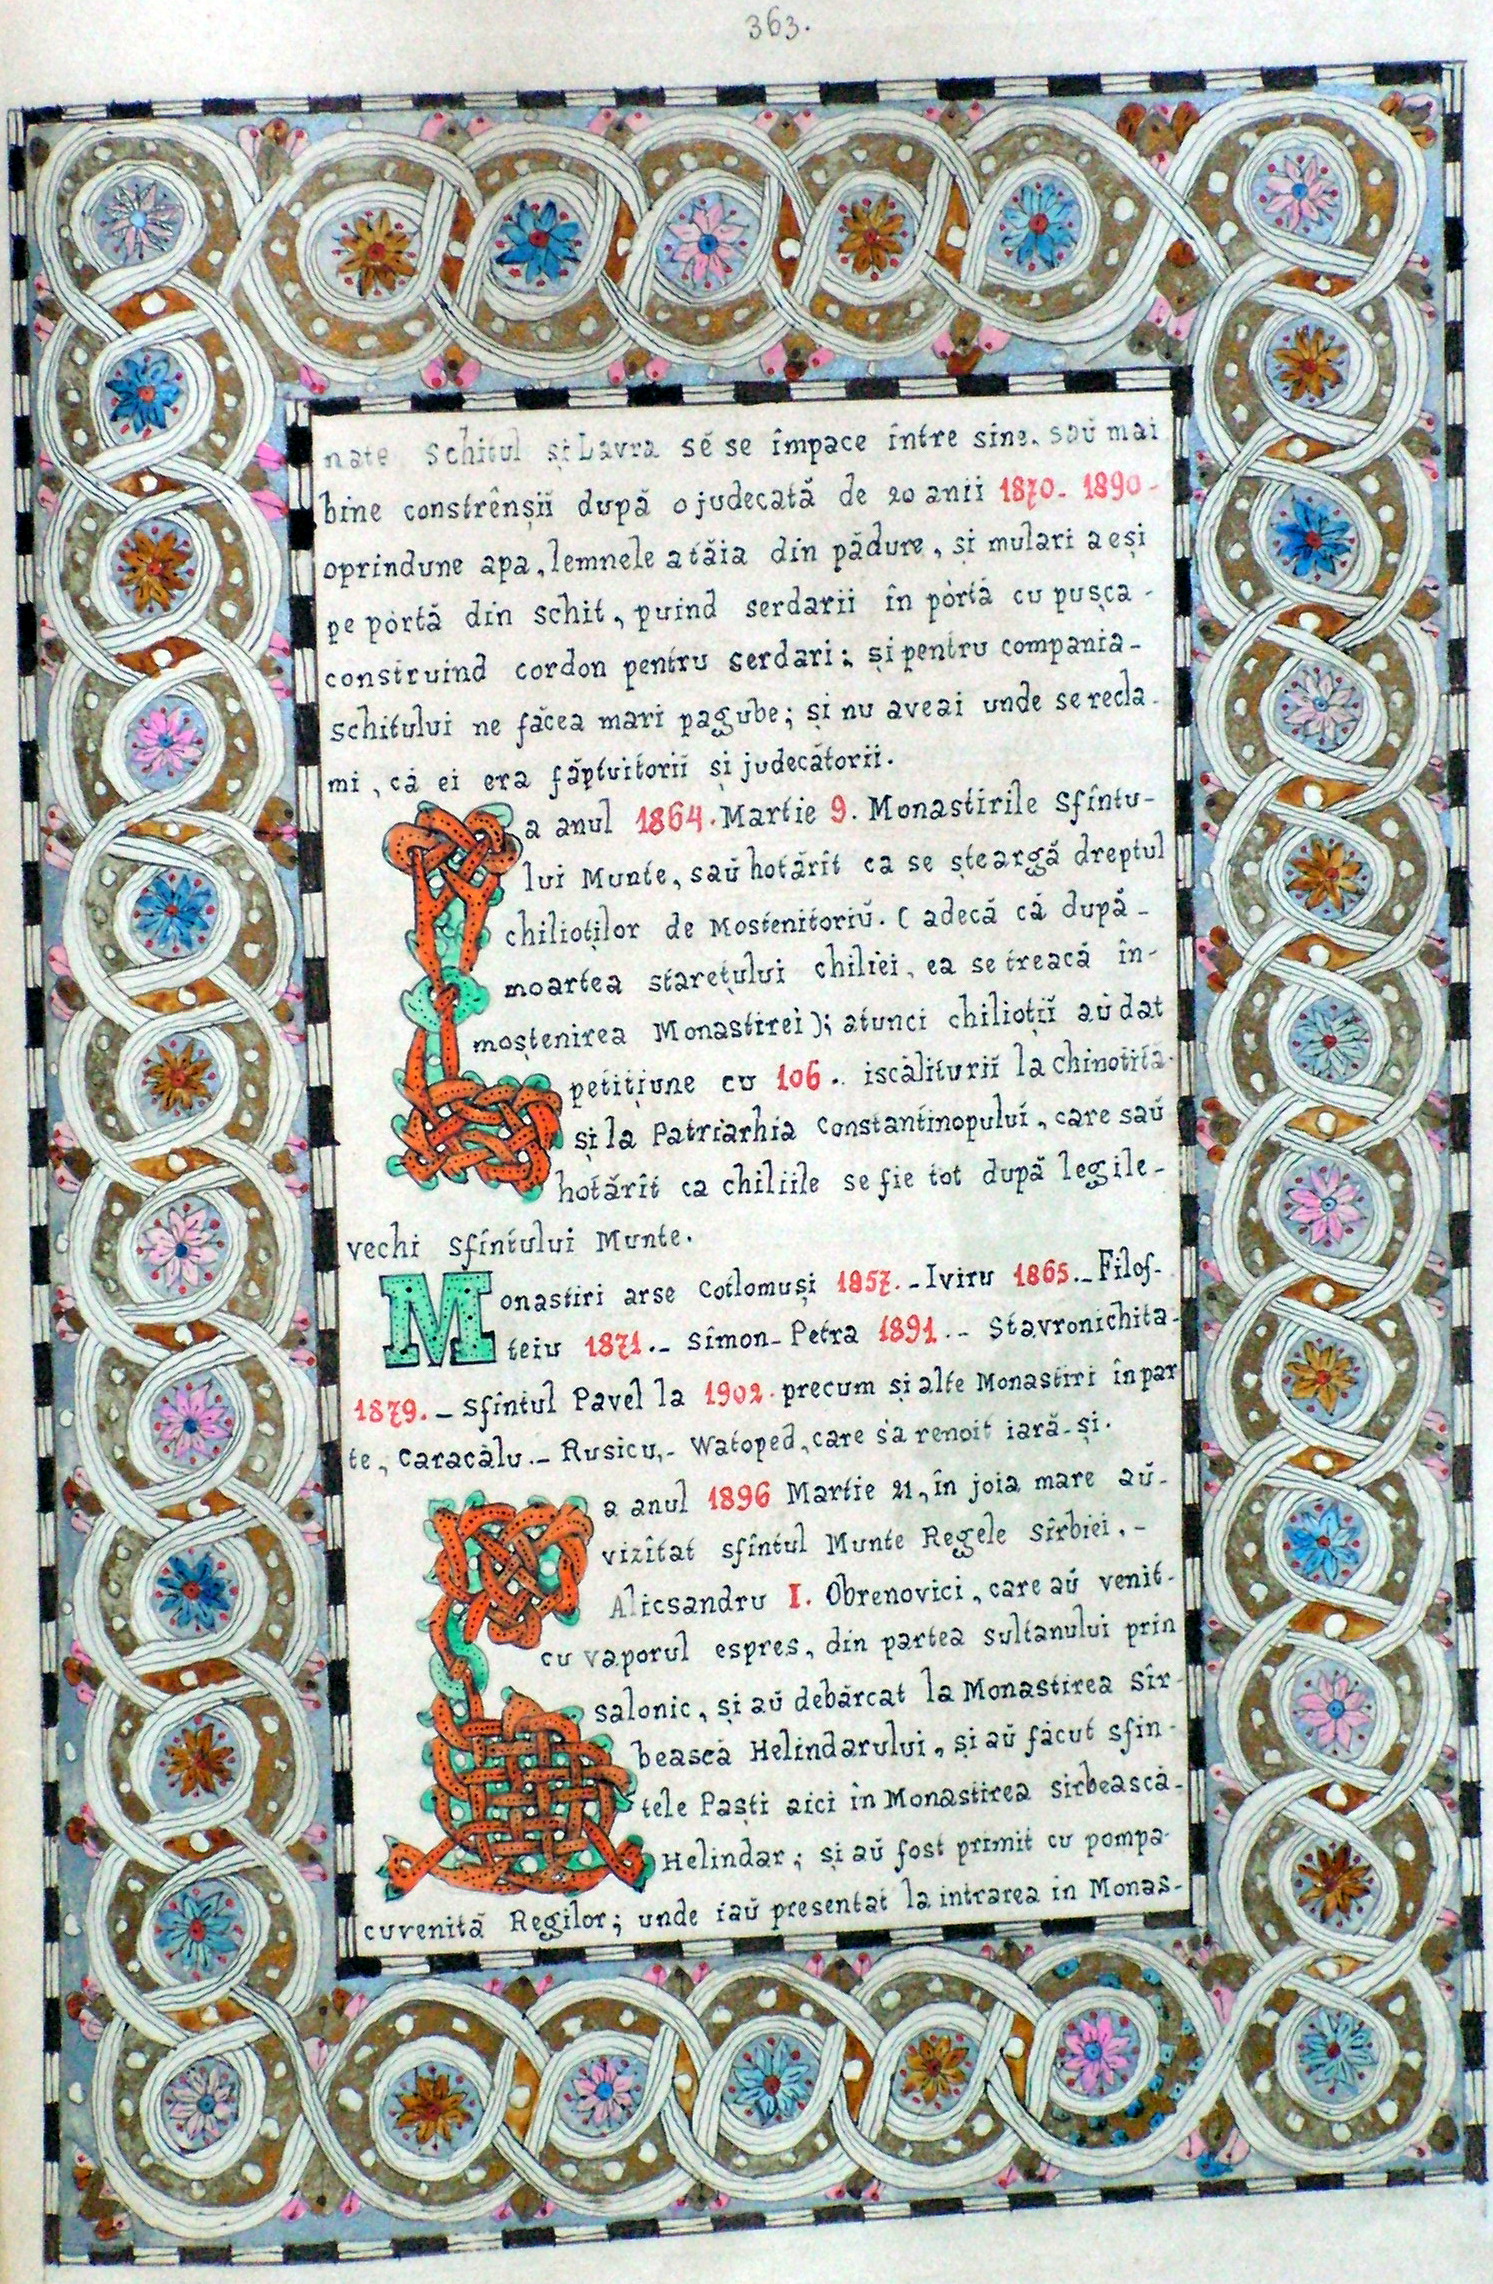 363.
nate Schitul și Lavra sĕ se împace între sine. saŭ mai
bine constrênșiĭ după o judecată de 20 anii 1870- 1890-
oprindune apa, lemnele a tăia din pădure, și mulari a eși
pe pórtă din schit, puind serdarii în pórtă cu pușca-
construind cordon pentru serdari; și pentru compania-
schitului ne făcea mari pagube; și nu aveai unde se recla-
mi, că ei era făptuitoriĭ și judecătorii.
La anul 1864. Martie 9. Monastirile Sfîntu-
lui Munte, saŭ hotărît ca se șteargă dreptul
chilioților de Mostenitoriŭ. (adecă că după-
moartea starețului chiliei, ea se treacă în-
moștenirea Monastirei); atunci chilioțiĭ aŭ dat
petițiune cu 106.. iscăliturĭĭ la chinotita-
și la Patriarhia Constantinopului, care saŭ
hotărît ca chiliile se fie tot după legile-
vechi sfîntului Munte.
Monastiri arse Cotlomuși 1857.- Iviru 1865.- Filof-
teiu 1871.- Simon-Petra 1891.- Stavronichita-
1879.- Sfîntul Pavel la 1902. precum și alte Monastiri în par
te, Caracălu.- Rusicu,- Watoped, care s'a renoit iară-și.
La anul 1896 Martie 21, în joia mare aŭ-
vizîtat sfîntul Munte Regele Sîrbiei.-
Alicsandru I. Obrenovici, care aŭ venit-
cu vaporul espres, din partea Sultanului prin
salonic, și aŭ debărcat la Monastirea Sîr-
bească Helindarului, și aŭ făcut sfin-
tele Paști aici în Monastirea sîrbească-
Helindar; și aŭ fost primit cu pompa-
cuvenită Regilor; unde iaŭ presentat la intrarea in Monas-